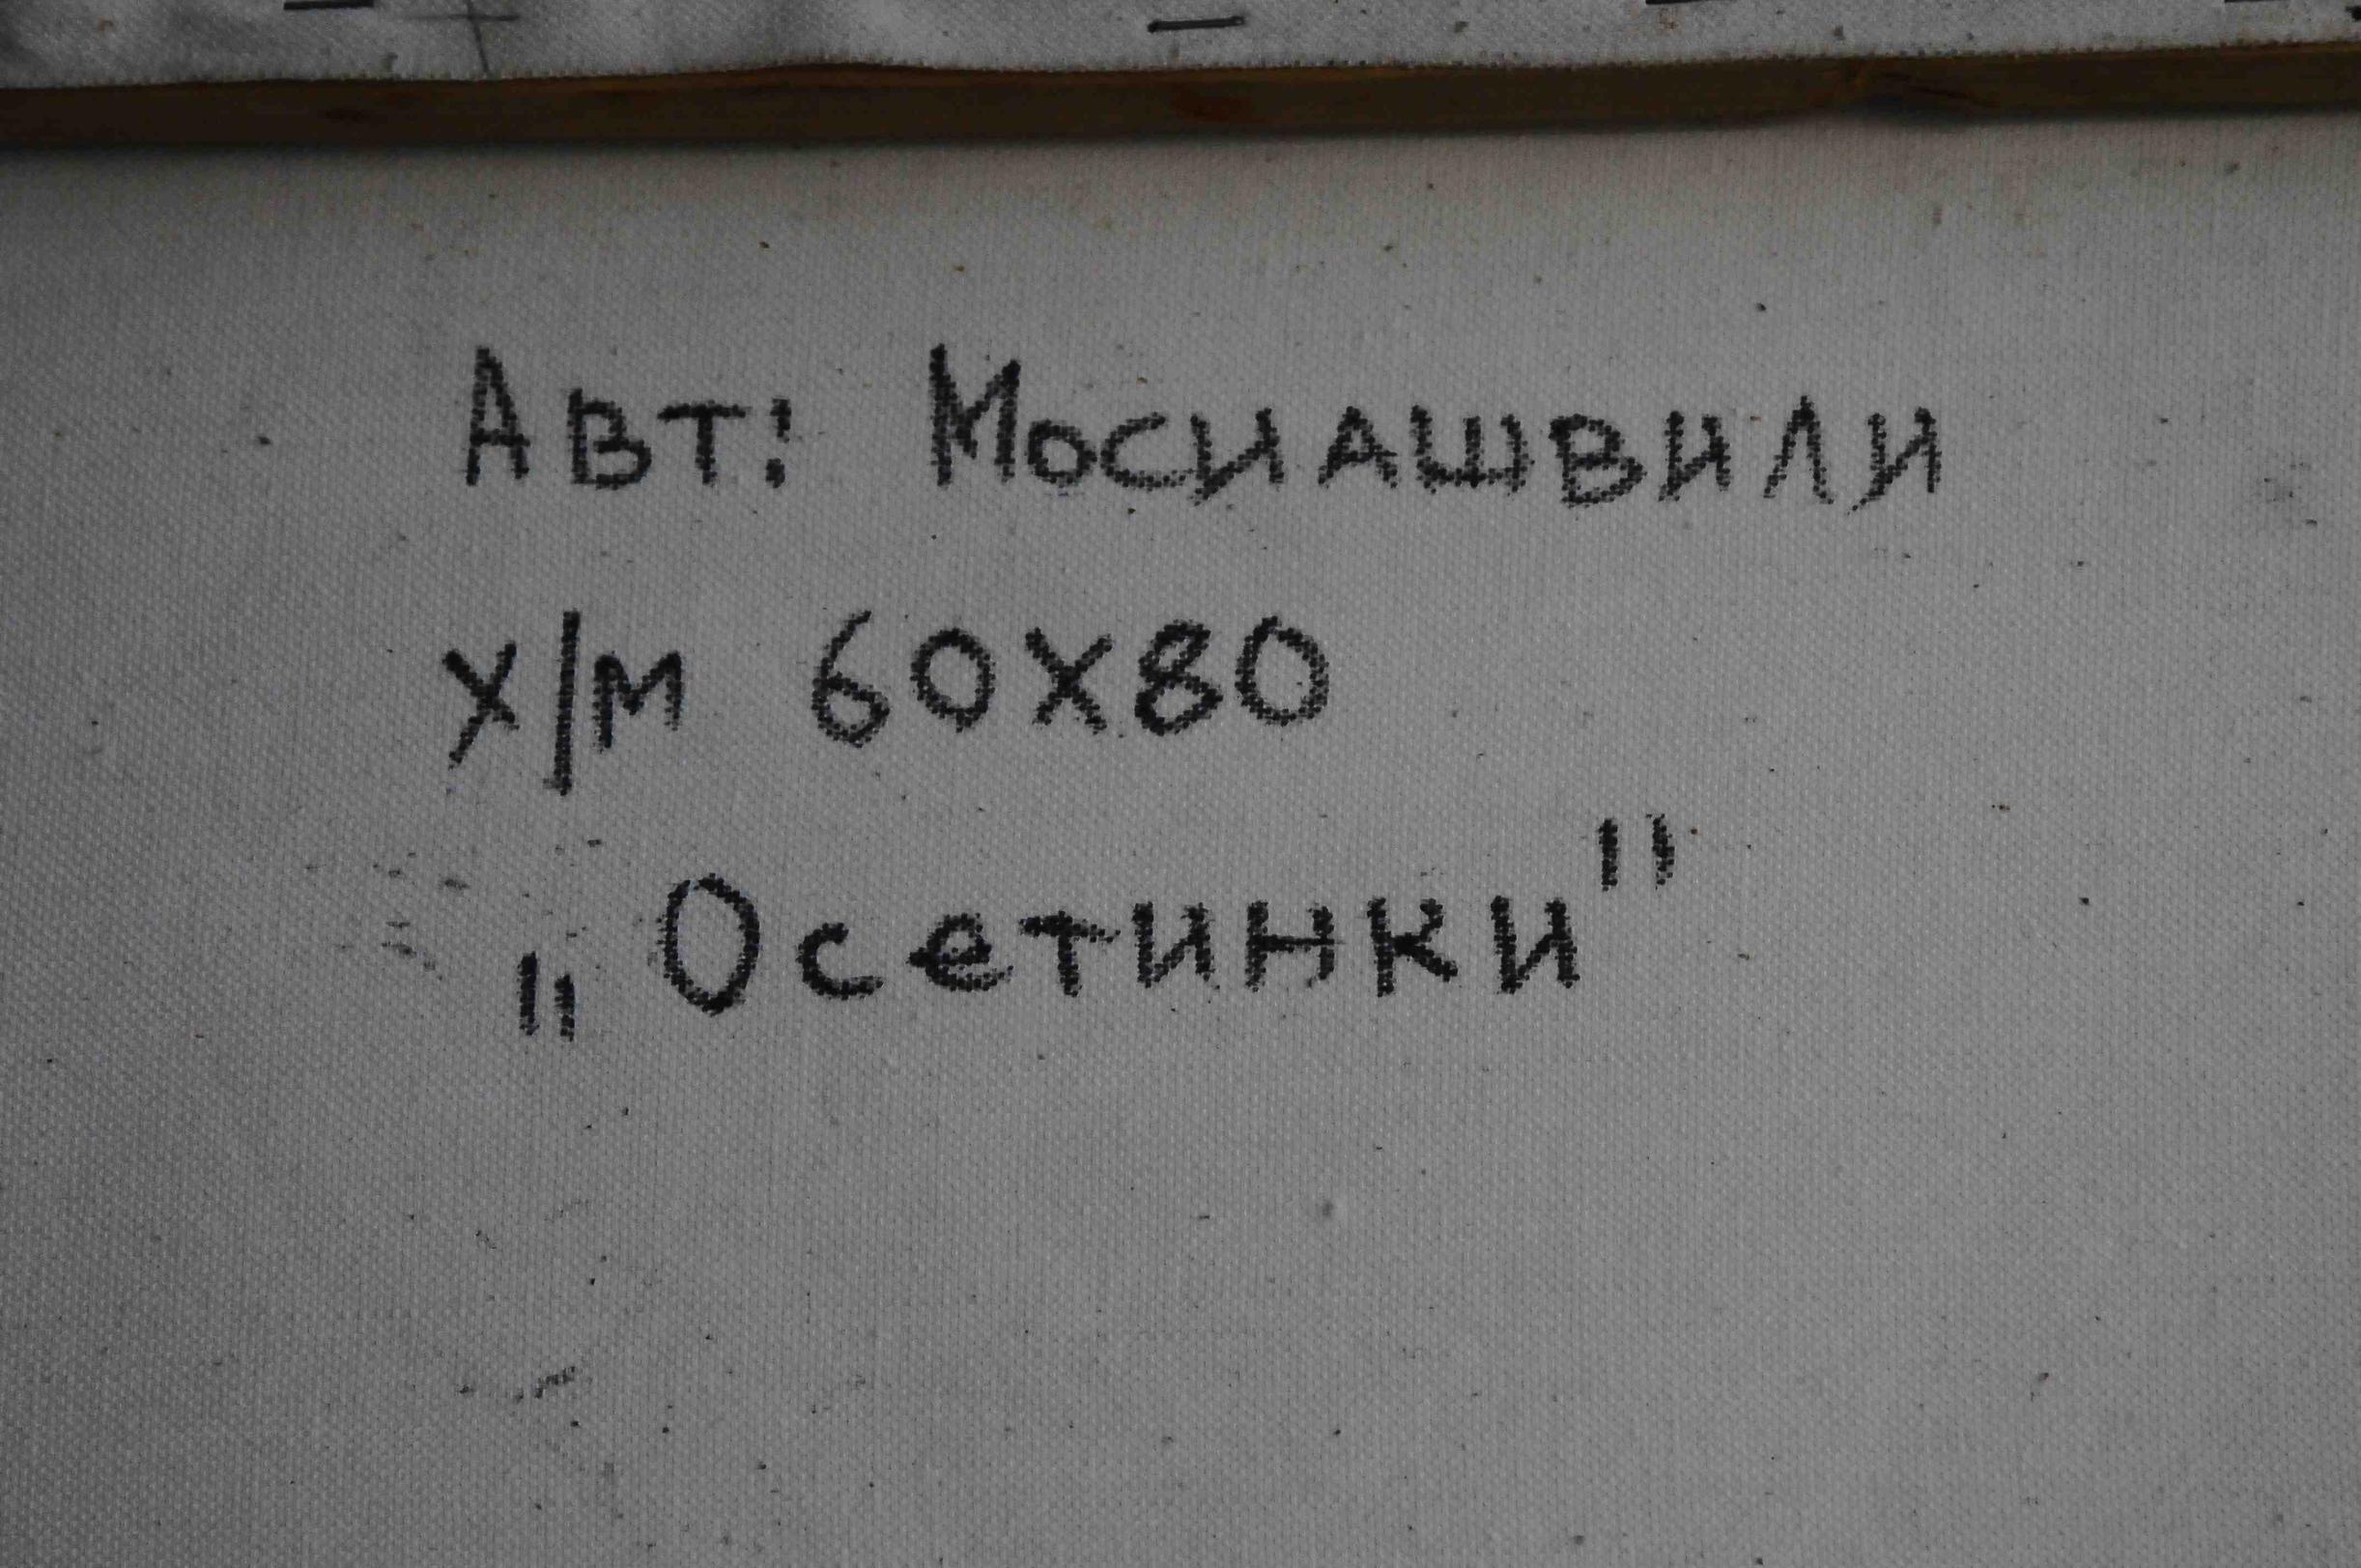 Авт: Мосиашвили
х/м 60х80
„Осетинки"